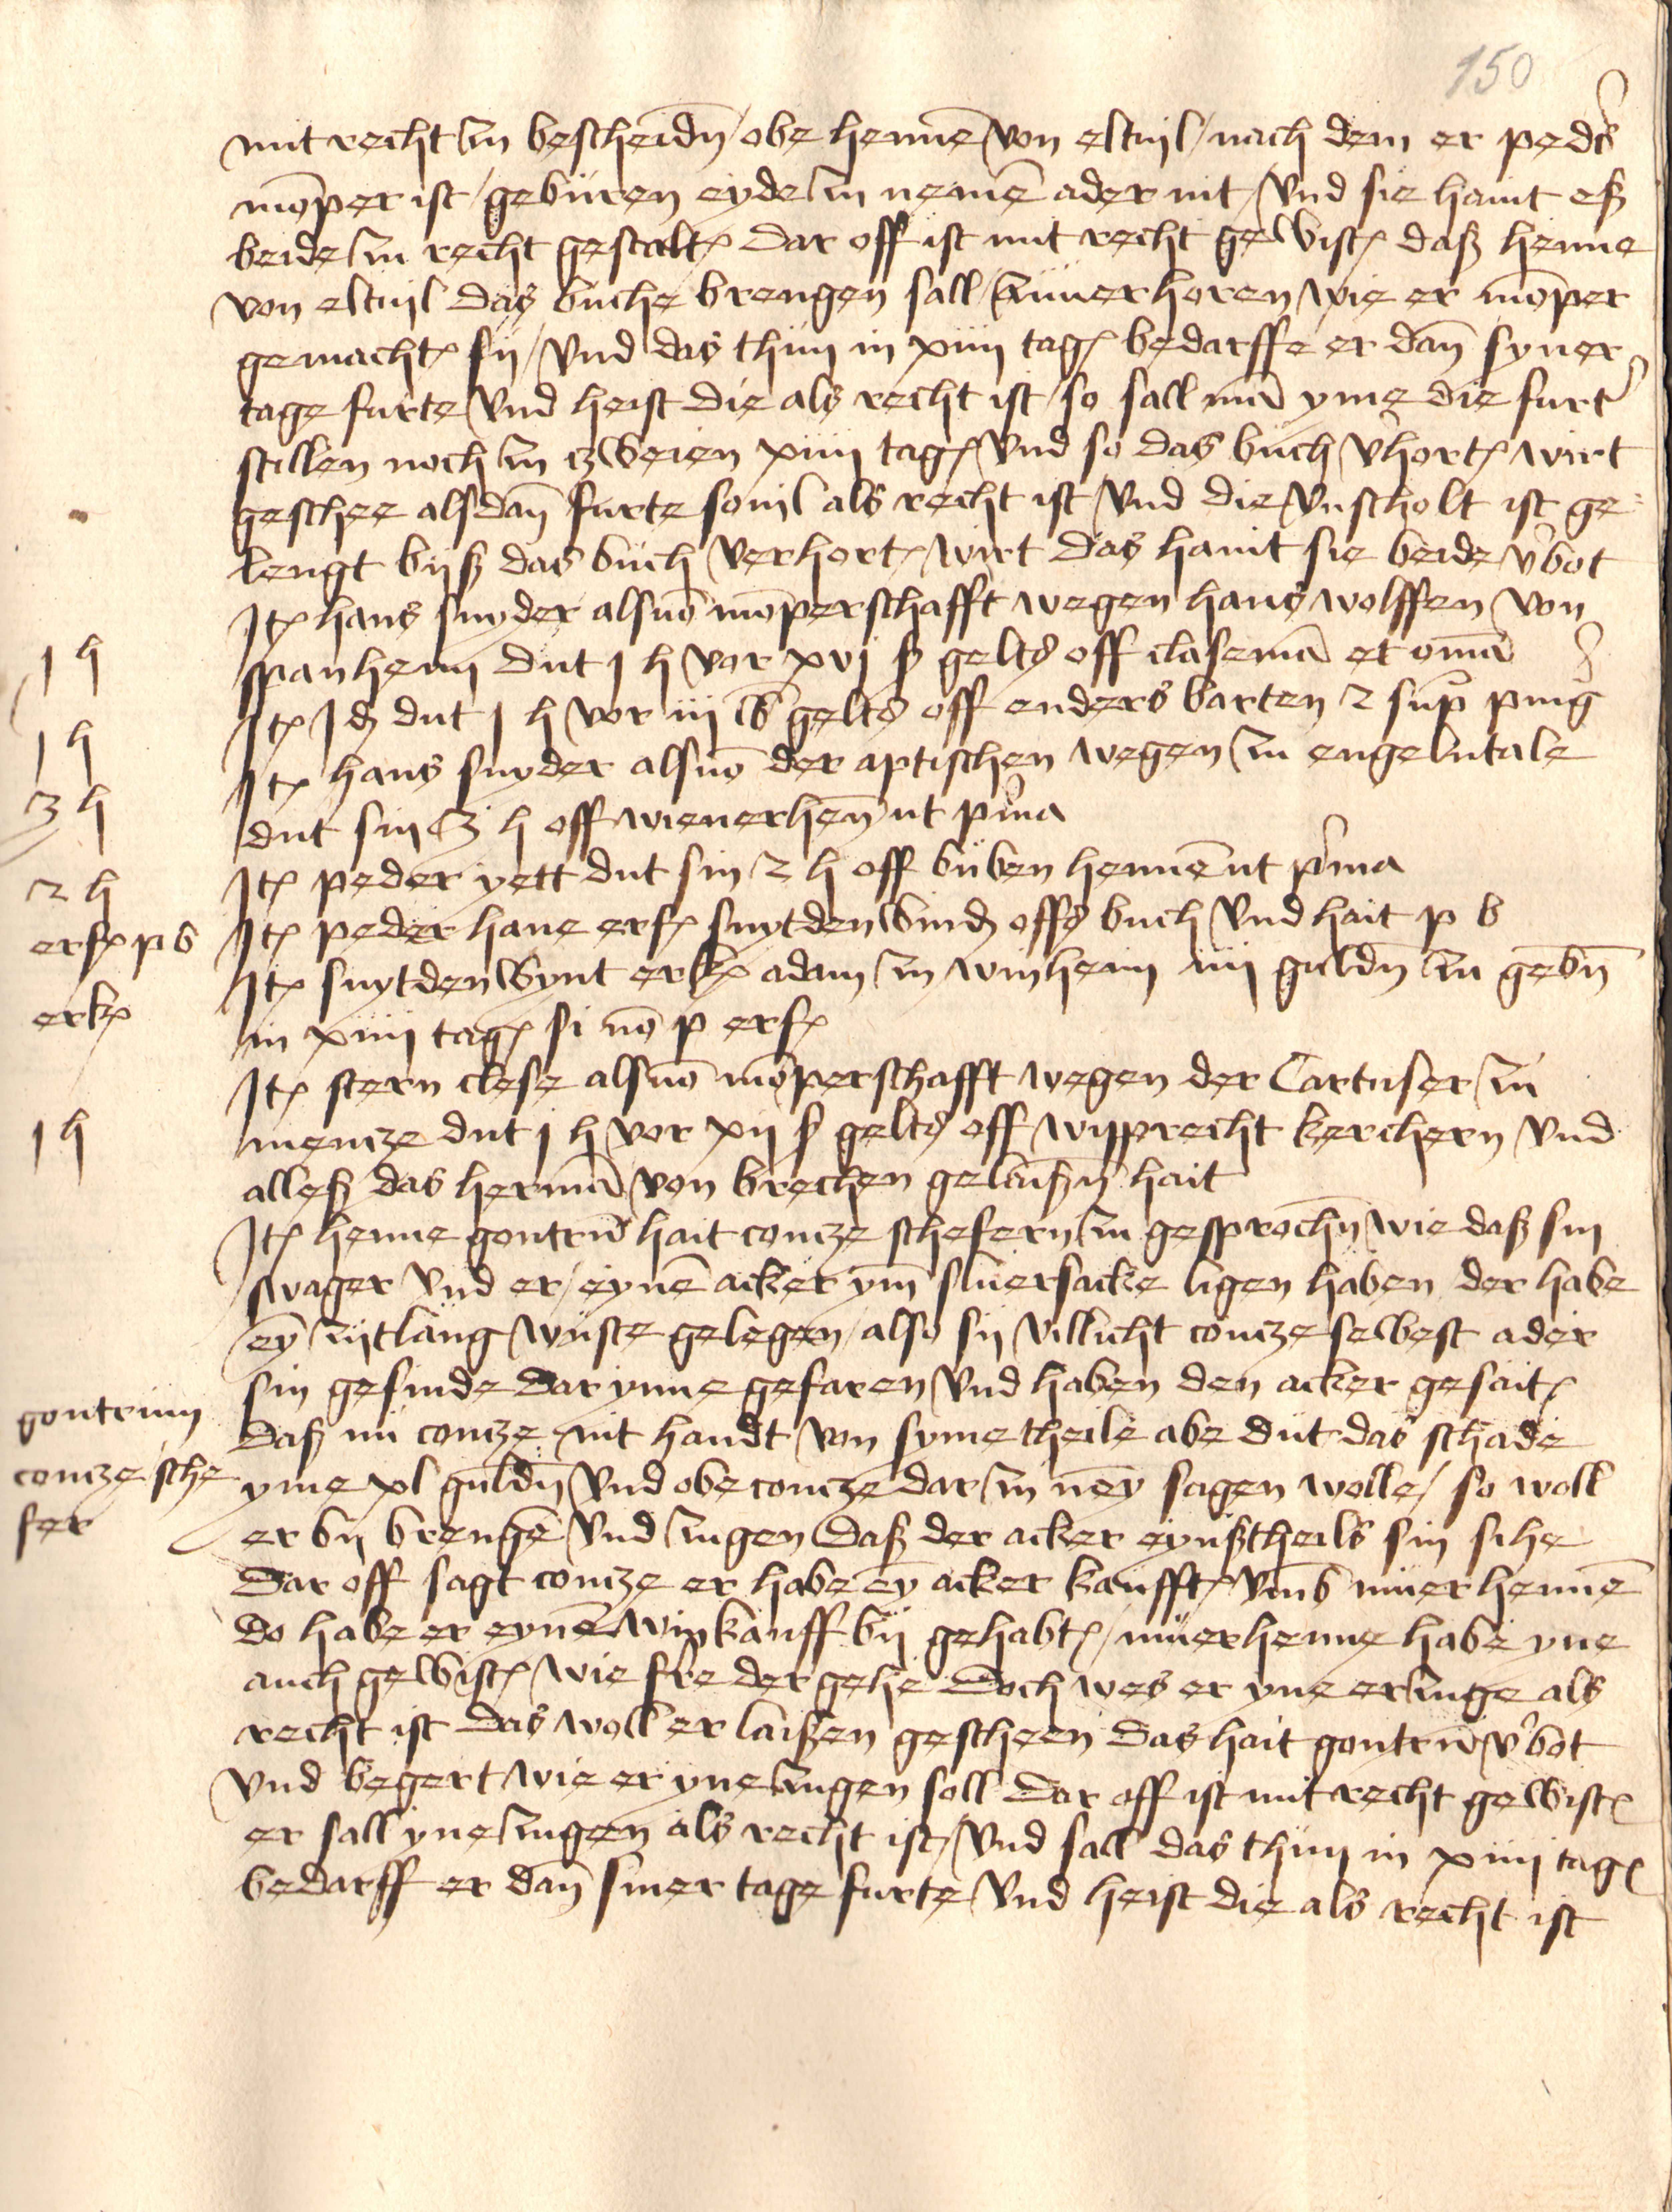 150
mit recht zu bescheidn / obe hennē von eltuil / nach dem er peds
mōper ist / geburen eyde zu nemē ader nit / vnd sie haint eß
beide zu recht gestalt Dar off ist mit recht gewist daß henne
von eltuil das buche brengen sall zuuerhoren wie er mōper
gemacht sy / vnd das thun in xiiii tag bedarffe er dan syner
tage furte vnd heist die als recht ist / so sall mā yme die furt
stillen noch zu zweien xiiii tag vnd so das buch v'hort wirt
geschee alsdan furte souil als recht ist vnd die vnscholt ist ge
lengt byß das buch verhort wirt Das haint sie beide v'bot
Jt hans snyder als uō mōperschafft wegen hans wolffen von
spanheim dut j h vor xvj ß gelts off clasemā et oīa
Jt Jd dut j h vor iij lb gelts off enders barten z sup ping
Jt hans snyder als uō der aptischen wegen zu engelntale
dut sin 3 h off wienerhen ut pma
Jt peder yett dut sin 2 h off buben hennē ut pma
Jt peder hane erf snytdenwind offs buch vnd hait p b
Jt snytdenwynt erk adam zu winheim iiii guldn zu gebn
in xiiii tag si nō p erf
Jt stern clese als uō mōperschafft wegen der Cartuser zu
mencze dut j h vor xij ß gelts off wypprecht kerchern vnd
alleß das hermā von brechen gelaißn hait
Jt henne gontrū hait concze schefern zu gesprochn wie daß sin
swager vnd er / eynē acker ym sluersacke ligen haben der habe
ey zijtlang wuste gelegen / also sy villicht concze selbest ader
sin gesinde dar ynne gefaren vnd haben den acker gesait
Daß nu concze nit handt von syme theile abe dut das schade
yme xl guldn vnd obe concze dar zu ney sagen wolle / so woll
er by brengē vnd zugen Daß der acker eynßtheils sin sihe
Dar off sagt concze er habe ey acker kaufft vmb muer hennē
do habe er eynē winkauff by gehabt / muerhenne habe yne
auch gewist wie fre der gehe Doch wes er yne erzuge als
recht ist das woll er laißen gescheen Das hait gontrū v'bot
vnd begert wie er yne zugen soll Dar off ist mit recht gewist
er sall yne zugen als recht ist / vnd sall das thun in xiiii tag
bedarff er dan siner tage furte vnd heist die als recht ist
j h
j h
3 h
2 h
erf p b
erk
j h
gontrum
concze sche
fer